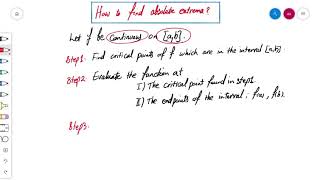 How to find absolute extrema?
Let f be continuous on [a,b].
Step1. Find critical points of f which are in the interval [a,b].
Step2. Evaluate the function at
I) The critical point found in step1.
II) The endpoints of the interval: f(a), f(b).
Step3.